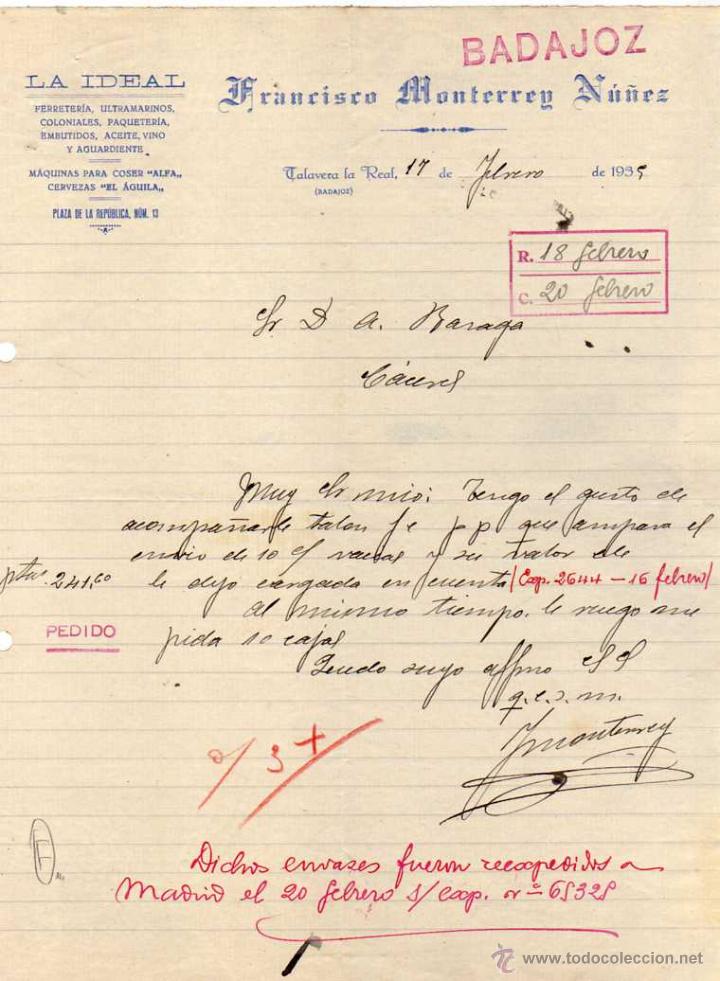 BADAJOZ
LA IDEAL
FERRETERÍA, ULTRAMARINOS,
COLONIALES, PAQUETERÍA,
EMBUTIDOS, ACEITE, VINO
Y AGUARDIENTE
MÁQUINAS PARA COSER "ALFA„
CERVEZAS "EL ÁGUILA„
PLAZA DE LA REPÚBLICA, NÚM. 13
Francisco Monterrey Núñez
Talavera la Real, 17 de Febrero de 1935
(BADAJOZ)
R. 18 febrero
C. 20 febrero
Sr D A. Baraga
Cáceres
Muy Sr mio: Tengo el gusto de
acompañarle talon que ampara el
envio de 10 c/ vacias y su valor de
ptas. 241,60 le dejo cargada en cuenta (Exp. 2644 - 16 febrero)
Al mismo tiempo le ruego me
PEDIDO
pida 10 cajas
Quedo suyo affmo S S
q.e.s.m.
FMonterrey
Dichos envases fueron reexpedidos a
Madrid el 20 febrero s/ exp. nº 65325
www.todocoleccion.net